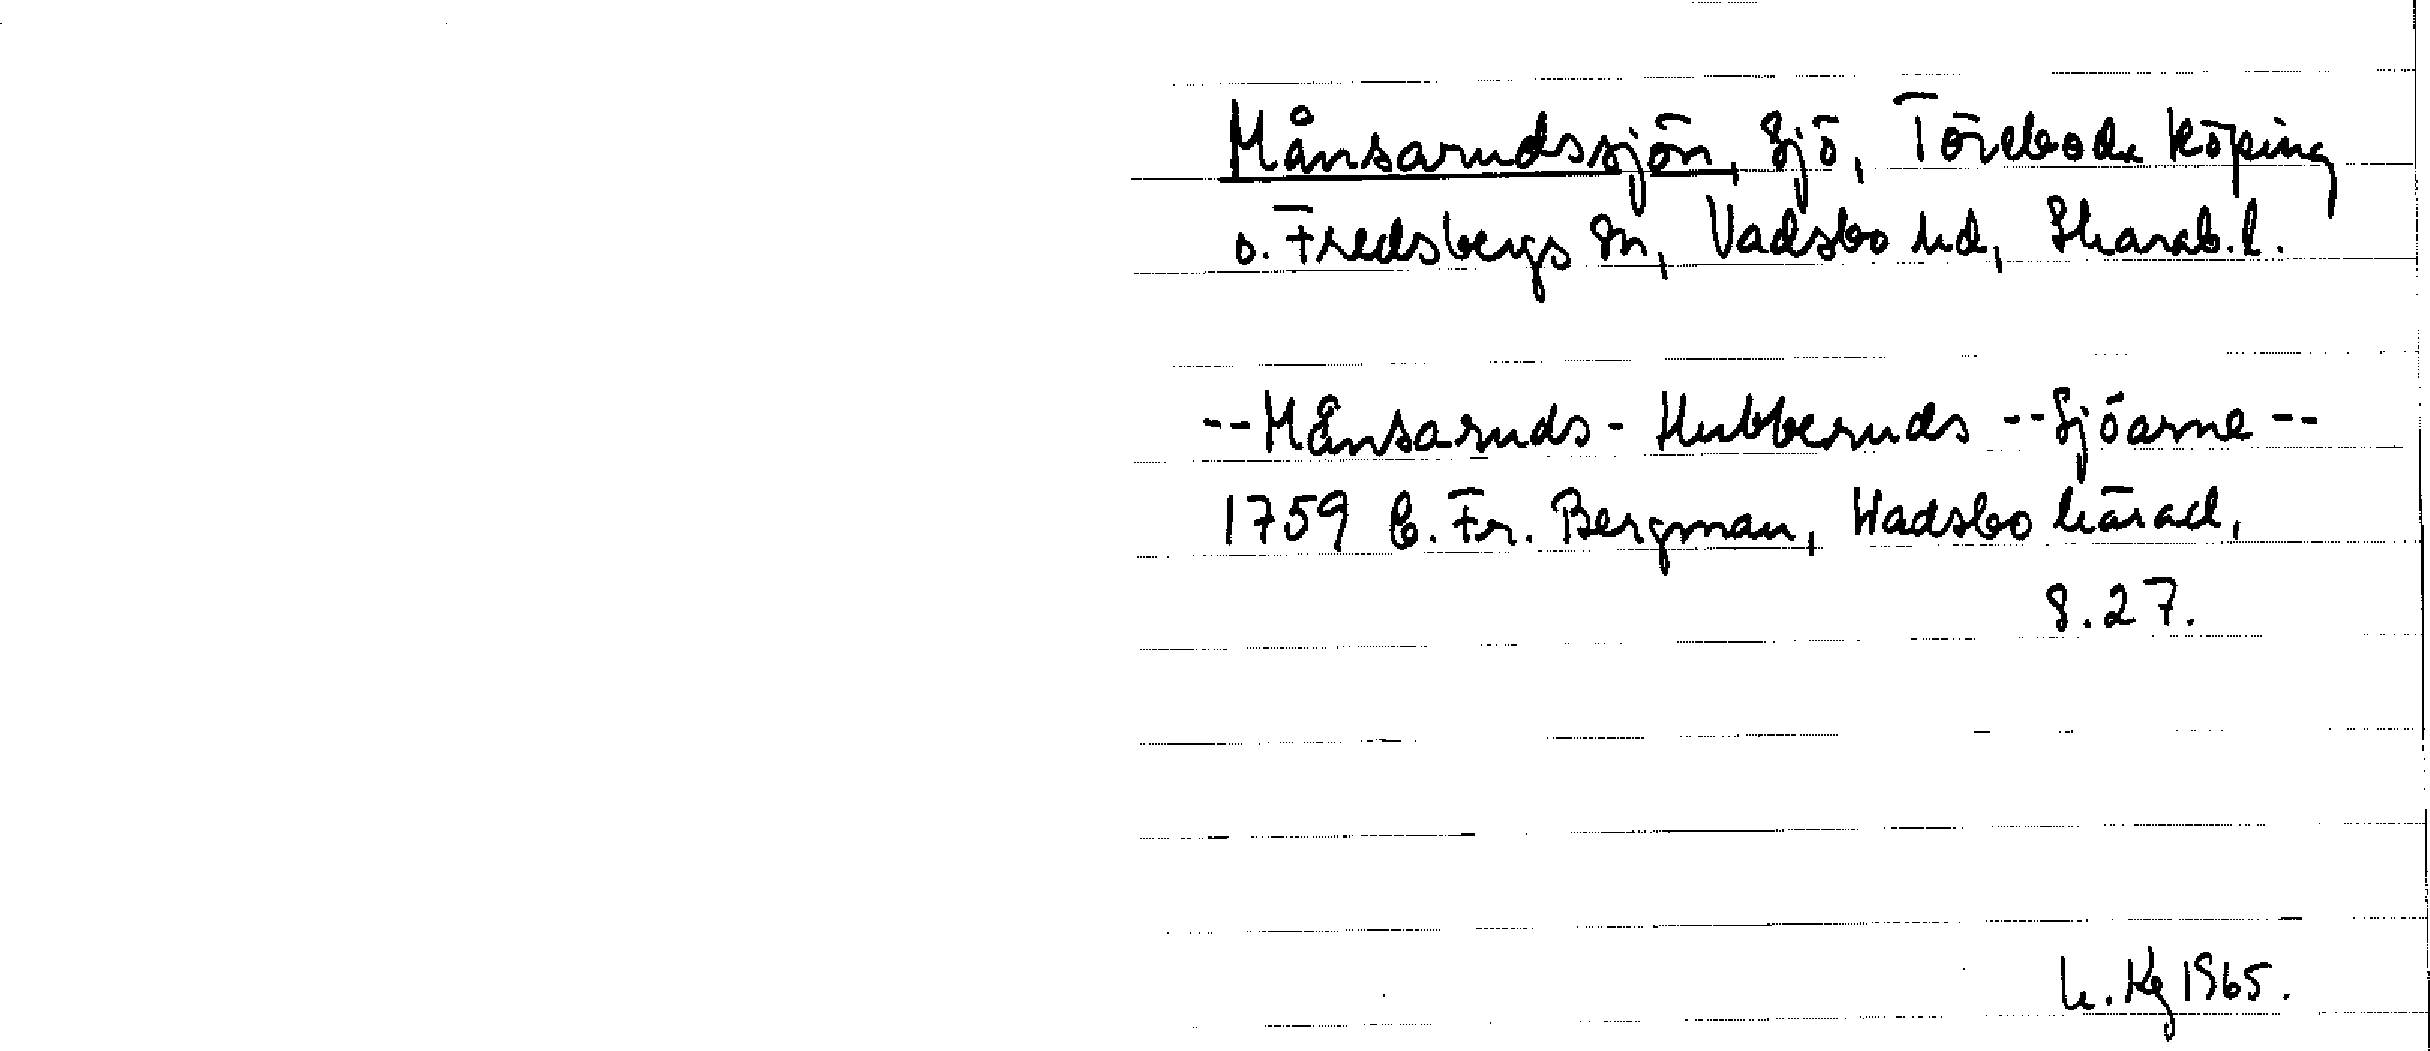 Månsarudssjön, Sjö, Töreboda köping
o. Fredsbergs sn, Vadsbo hd, Skarab.l.
--Månsaruds- Hubberuds --Sjöarne--
1759 C. Fr. Bergman, Wadsbo härad,
s.27.
1965.